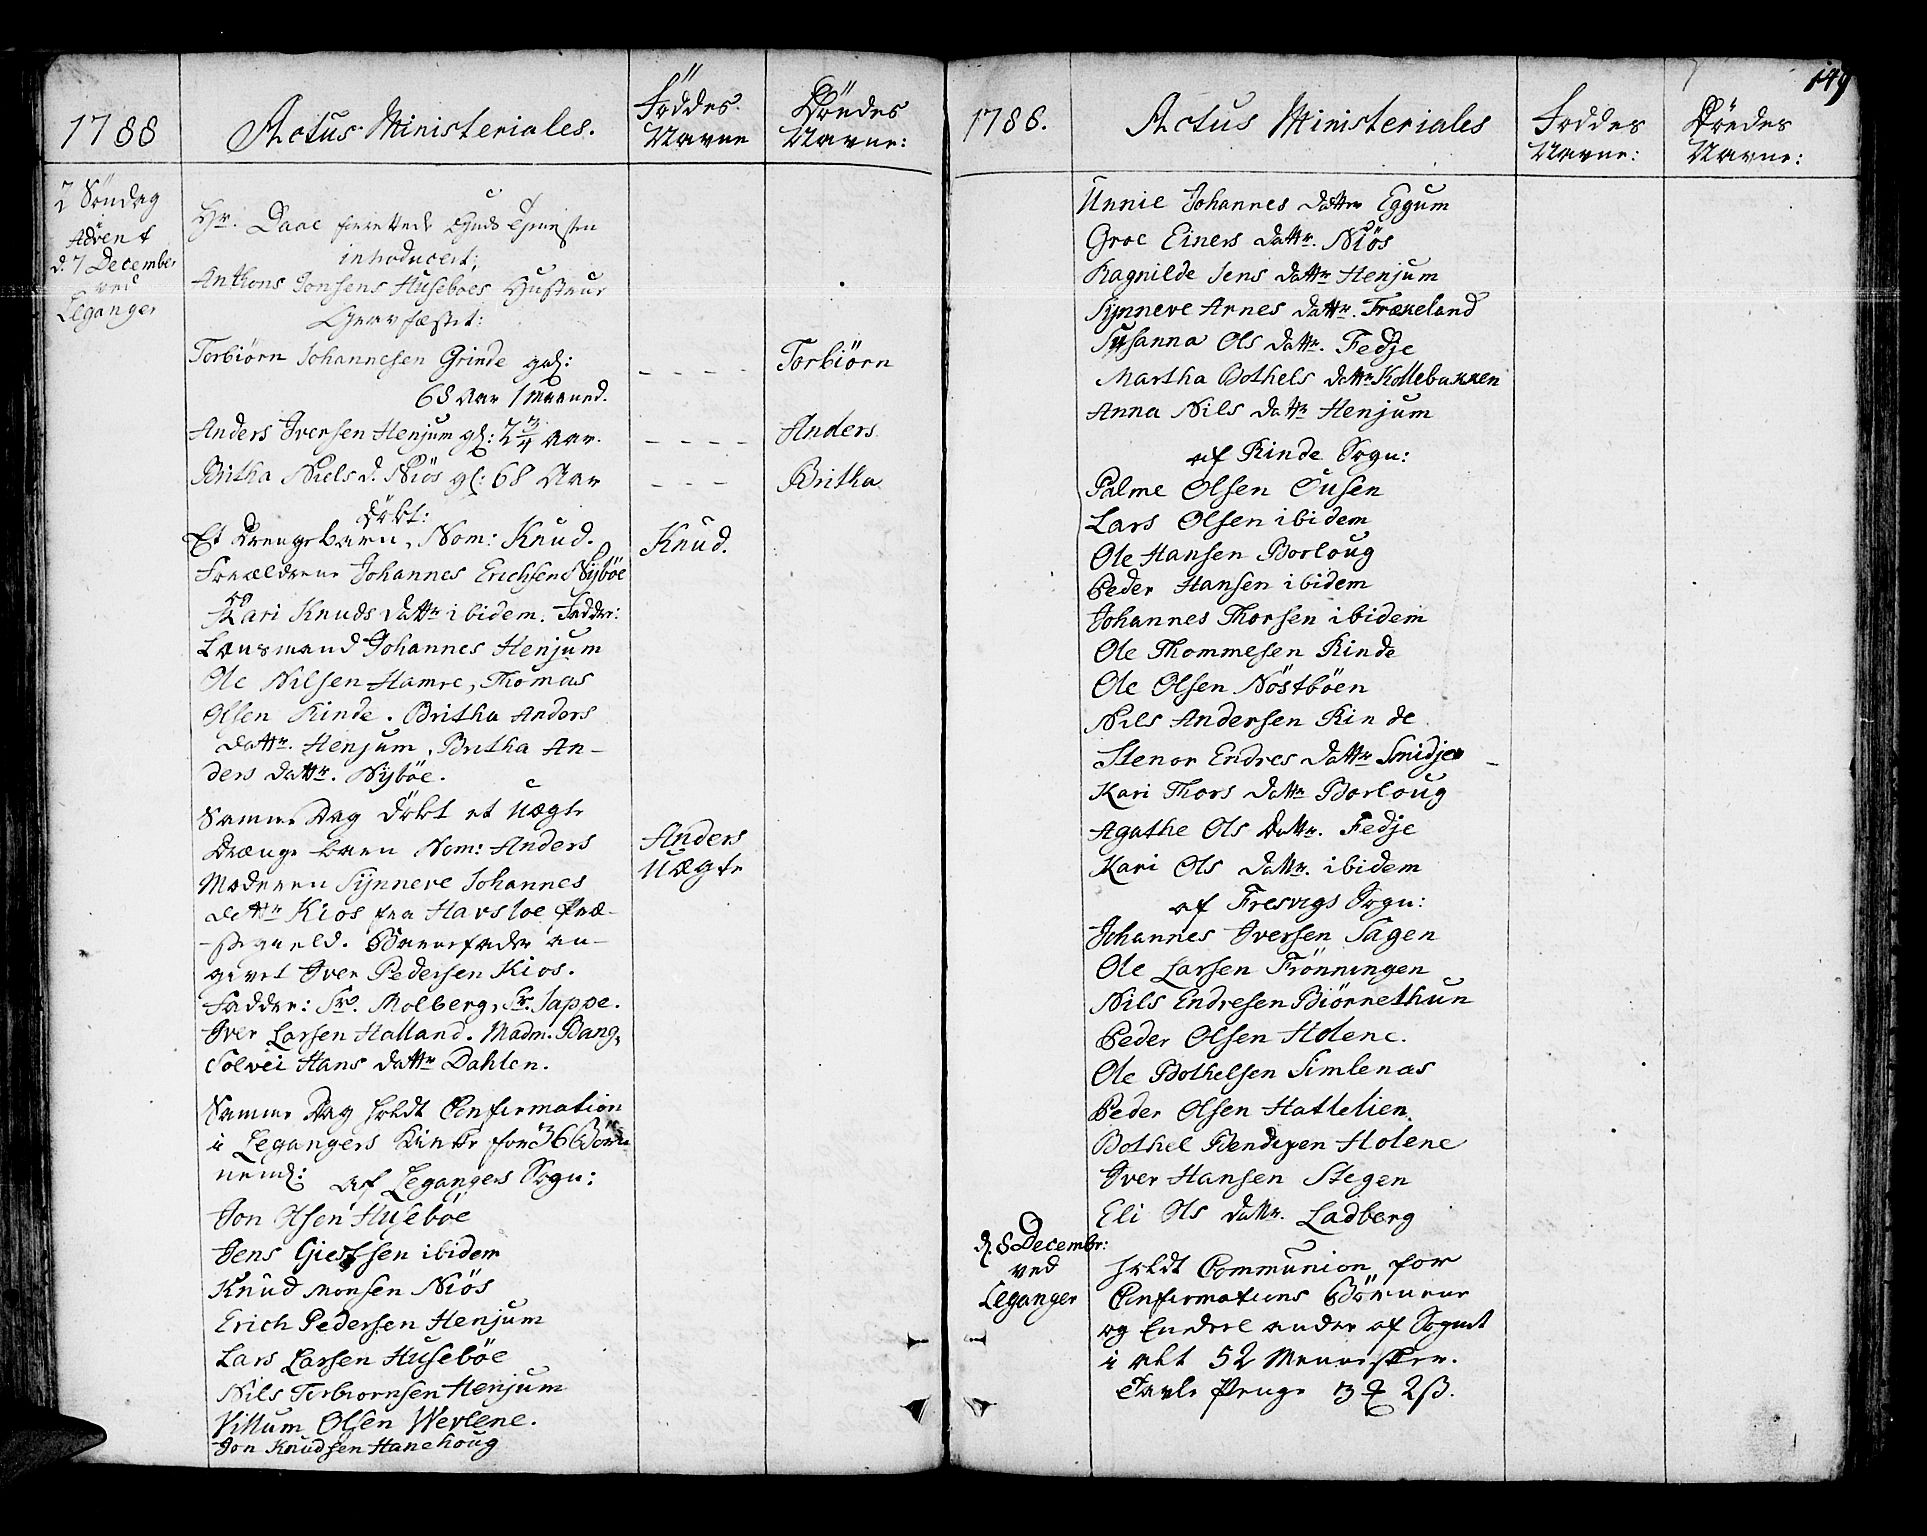 1788
Actus Ministeriales.
Föddes
Navne
Döedes
Navne:
2 Söndag
i
Advent
d. 7 December
ved
Leganger
Hr. Daae forrettede Guds Tienesten
introducert:
Anthons Jonsens Huseboes Hustrue
Gravfæstet:
Torbiörn Johannesen Grinde gl:
68 Aar 1 Maaned.
Torbiörn
Anders Iversen Henjum gl: 2 3/4 Aar.
Anders
Britha Niels d. Niös gl: 68 Aar
Britha
Döbt:
Et Drengebarn, Nom: Knud.
Knud.
Forældrene Johannes Erichsen Nyböe
og
Kari Knuds Dattr ibidem. Fadder:
Lensmand Johannes Henjum
Ole Nilsen Hamre, Thomas
Olsen Rinde. Britha Anders
Dattr. Henjum, Britha An-
ders Dattr. Nyböe.
Samme Dag döbt et uægte
Drænge barn Nom: Anders
Anders
Uægte
Moderen Synneve Johannes
Dattr Kios fra Hafsloe Præ-
stegield. Barnefader an-
givet Iver Pedersen Kios.
Fadder: Sr. Molberg, Sr. Jappe.
Iver Larsen Halland. Madm. Bang,
Solvei Hans Dattr Dahlen.
Samme Dag holdt Confirmation
i Legangers Kirke for 36 Börn
neml: af Legangers Sogn:
Jon Olsen Huseböe
Jens Giertsen ibidem
Knud Monsen Niös
Erich Pedersen Henjum
Lars Larsen Huseböe
Nils Torbiornsen Henjum
Villum Olsen Werlene.
Jon Knudsen Hanehoug
149
1788.
Actus Ministeriales
Föddes
Navne:
Döedes
Navne:
Unnie Johannes Dattr Eggum
Groe Einers Dattr. Niös
Ragnilde Jens Dattr Henjum
Synneve Arnes Dattr. Fræneland
Susanna Ols Dattr. Fedje
Martha Bothels Dattr Kollebakken
Anna Nils Dattr Henjum
af Rinde Sogn:
Palme Olsen Ousen
Lars Olsen ibidem
Ole Hansen Borloug
Peder Hansen ibidem
Johannes Thorsen ibidem
Ole Thommesen Rinde
Ole Olsen Nöstböen
Nils Andersen Rinde
Stenor Endres Dattr Smidje
Kari Thors Dattr Borloug
Agathe Ols Dattr. Fedje
Kari Ols Dattr. ibidem
af Fresvigs Sogn:
Johannes Iversen Sagen
Ole Larsen Frönningen
Nils Endresen Biörnethun
Peder Olsen Holene.
Ole Bothelsen Simlenas
Peder Olsen Hatlelien.
Bothel Bendixen Holene
Iver Hansen Stegen
Eli Ols Dattr. Ladberg
d. 8 Decembr:
ved
Leganger
holdt Communion for
Confirmations Börnene
og Endeel andre af Sognet
i alt 52 Mennisker.
Tavle Penge 3 2 ß.